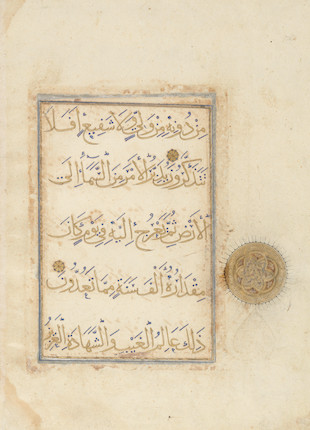 مِن دُونِهِ مِن وَلِيٍّ وَلَا شَفِيعٍ أَفَلَا
تَتَذَكَّرُونَ يُدَبِّرُ الْأَمْرَ مِنَ السَّمَاءِ إِلَى
الْأَرْضِ ثُمَّ يَعْرُجُ إِلَيْهِ فِي يَوْمٍ كَانَ
مِقْدَارُهُ أَلْفَ سَنَةٍ مِمَّا تَعُدُّونَ
ذَلِكَ عَالِمُ الْغَيْبِ وَالشَّهَادَةِ الْعَزِيزُ